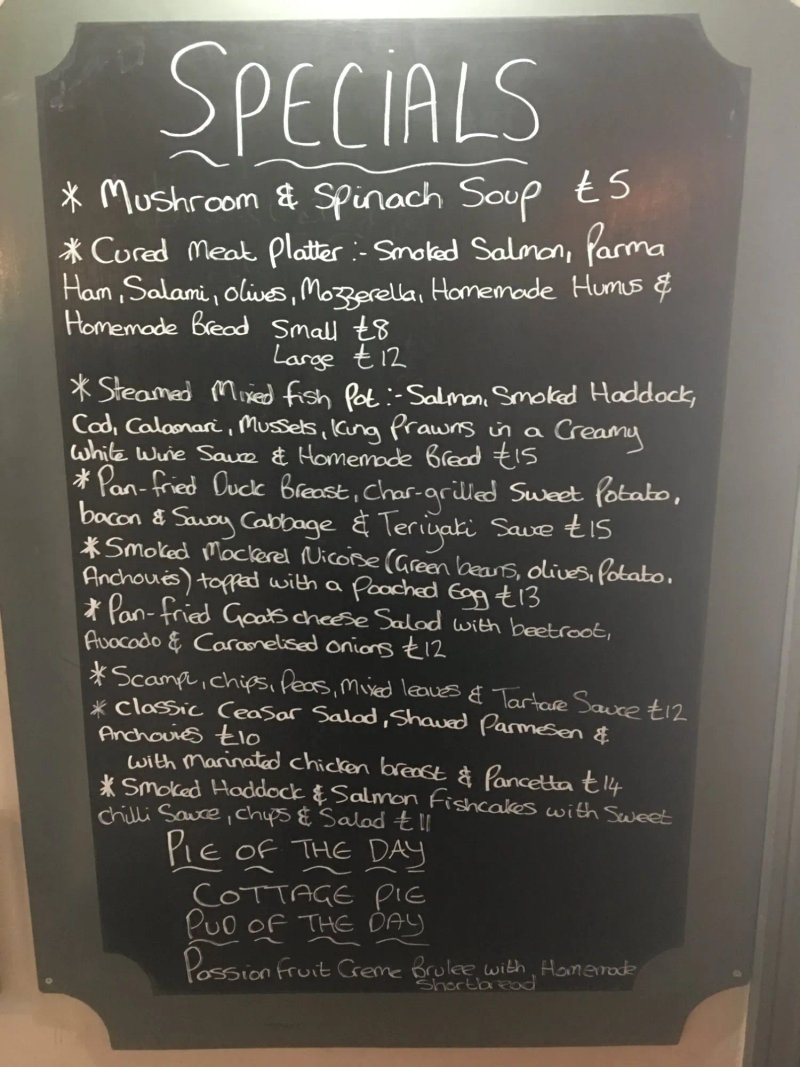 SPECIALS
* Mushroom & Spinach Soup £5
* Cured Meat Platter :- Smoked Salmon, Parma
Ham, Salami, olives, Mozzerella, Homemade Humus &
Homemade Bread Small £8
Large £12
* Steamed Mixed fish Pot :- Salmon, Smoked Haddock,
Cod, Calamari, Mussels, King Prawns in a Creamy
White Wine Sauce & Homemade Bread £15
* Pan-fried Duck Breast, Char-grilled Sweet Potato,
bacon & Savoy Cabbage & Teriyaki Sauce £15
* Smoked Mackerel Nicoise (Green beans, olives, Potato,
Anchovies) topped with a Poached Egg £13
* Pan-fried Goats cheese Salad with beetroot,
Avocado & Caramelised onions £12
* Scampi, chips, Peas, Mixed leaves & Tartare Sauce £12
* Classic Ceasar Salad, Shaved Parmesen &
Anchovies £10
with Marinated chicken breast & Pancetta £14
* Smoked Haddock & Salmon Fishcakes with Sweet
chilli Sauce, chips & Salad £11
PIE OF THE DAY
COTTAGE PIE
PUD OF THE DAY
Passion fruit Creme Brulee with, Homemade
Shortbread